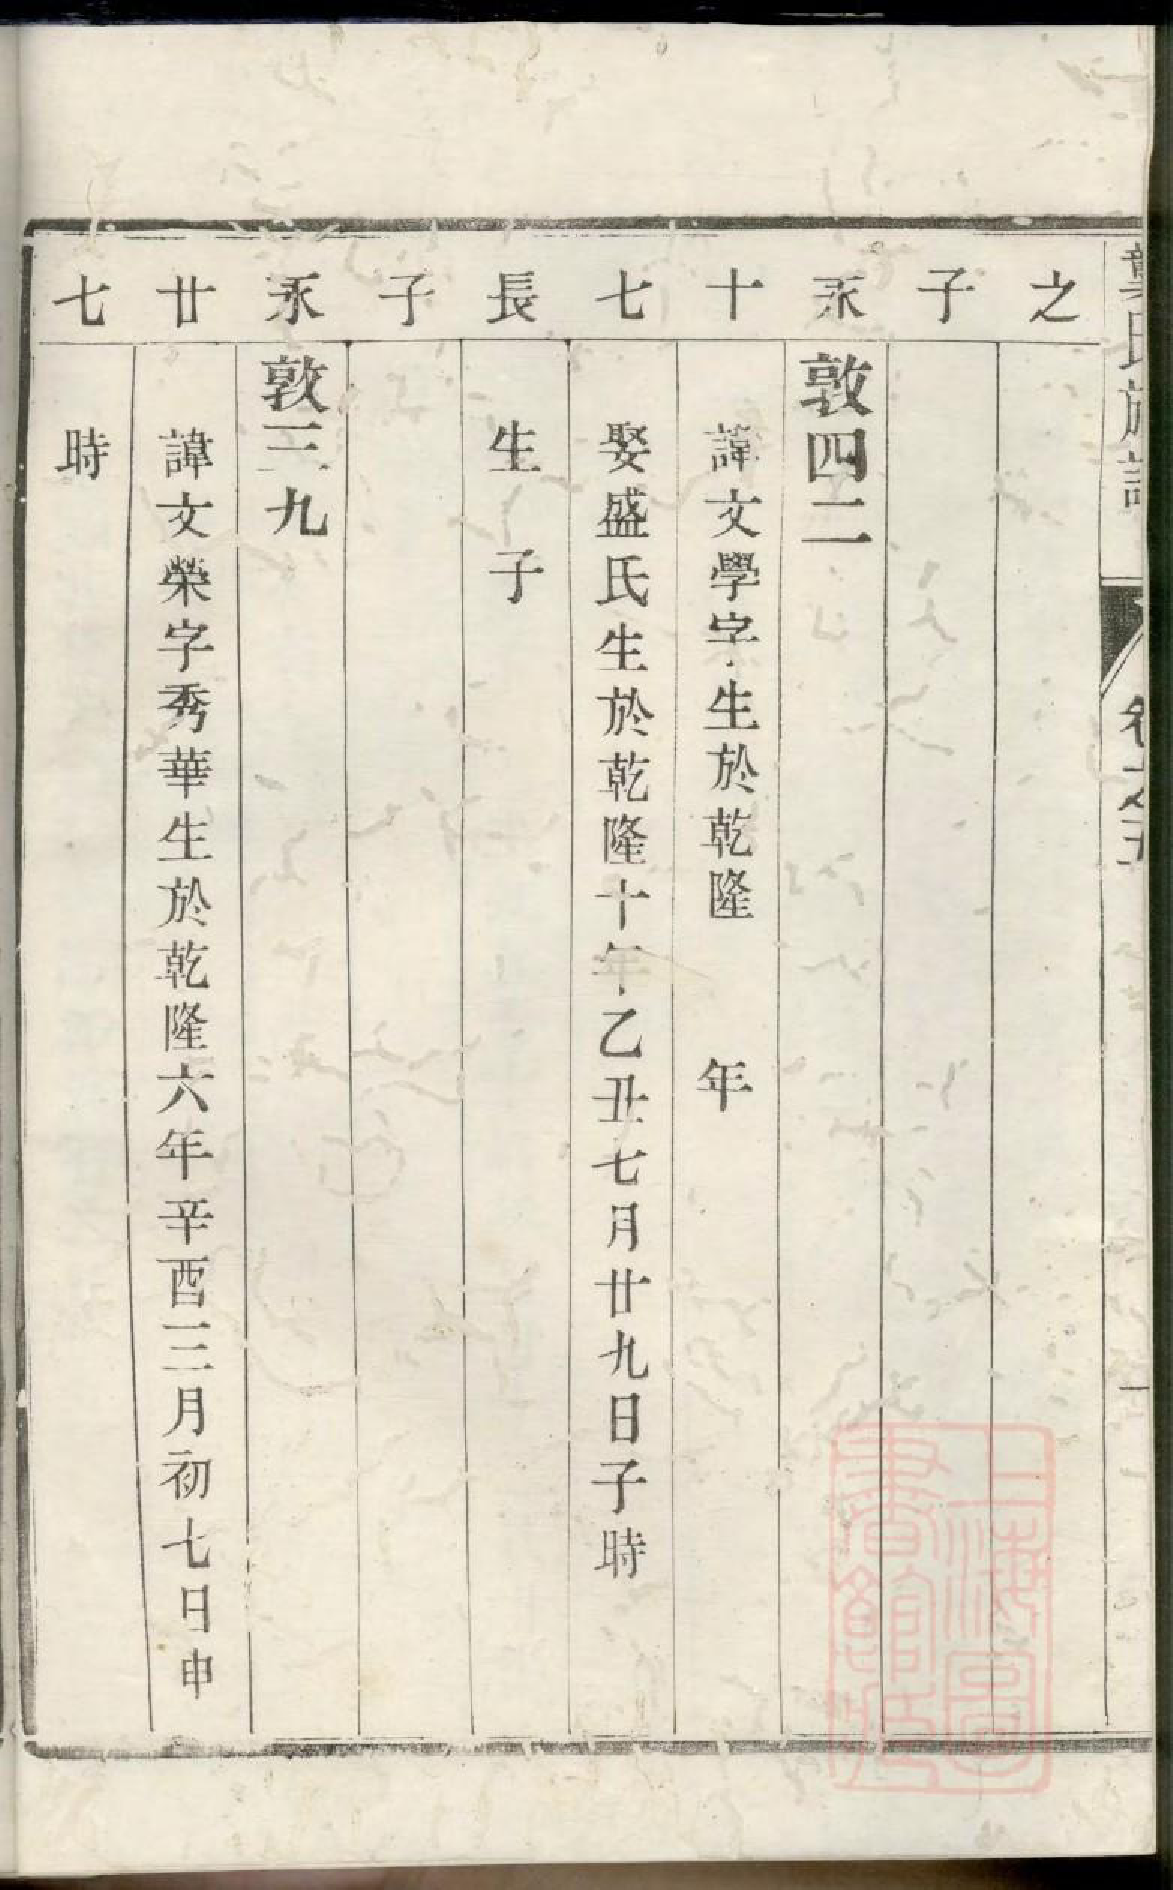 氏族譜
卷之五
之
子
永 敦四二
十 諱文學字 生於乾隆 年
七 娶盛氏生於乾隆十年乙丑七月廿九日子時
長 生 子
子
永 敦三九
廿 諱文榮字秀華生於乾隆六年辛酉三月初七日申
七 時
上海圖
書館藏